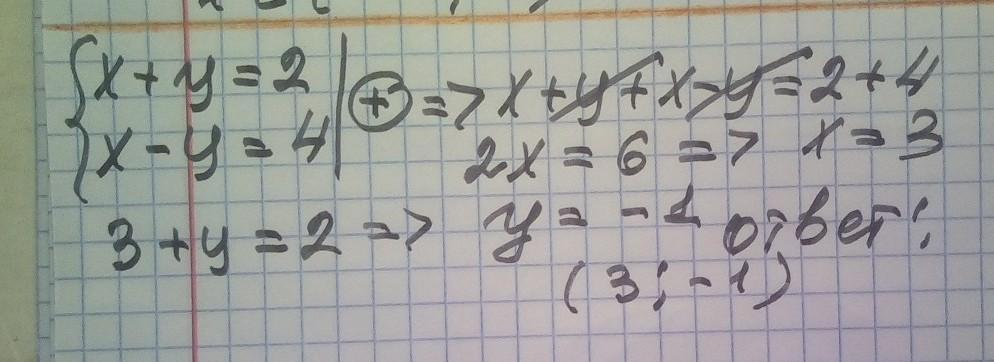 {x + y = 2 | ⊕ => x + y + x - y = 2 + 4
{x - y = 4 | 2x = 6 => x = 3
3 + y = 2 => y = -1 ответ:
(3; -1)